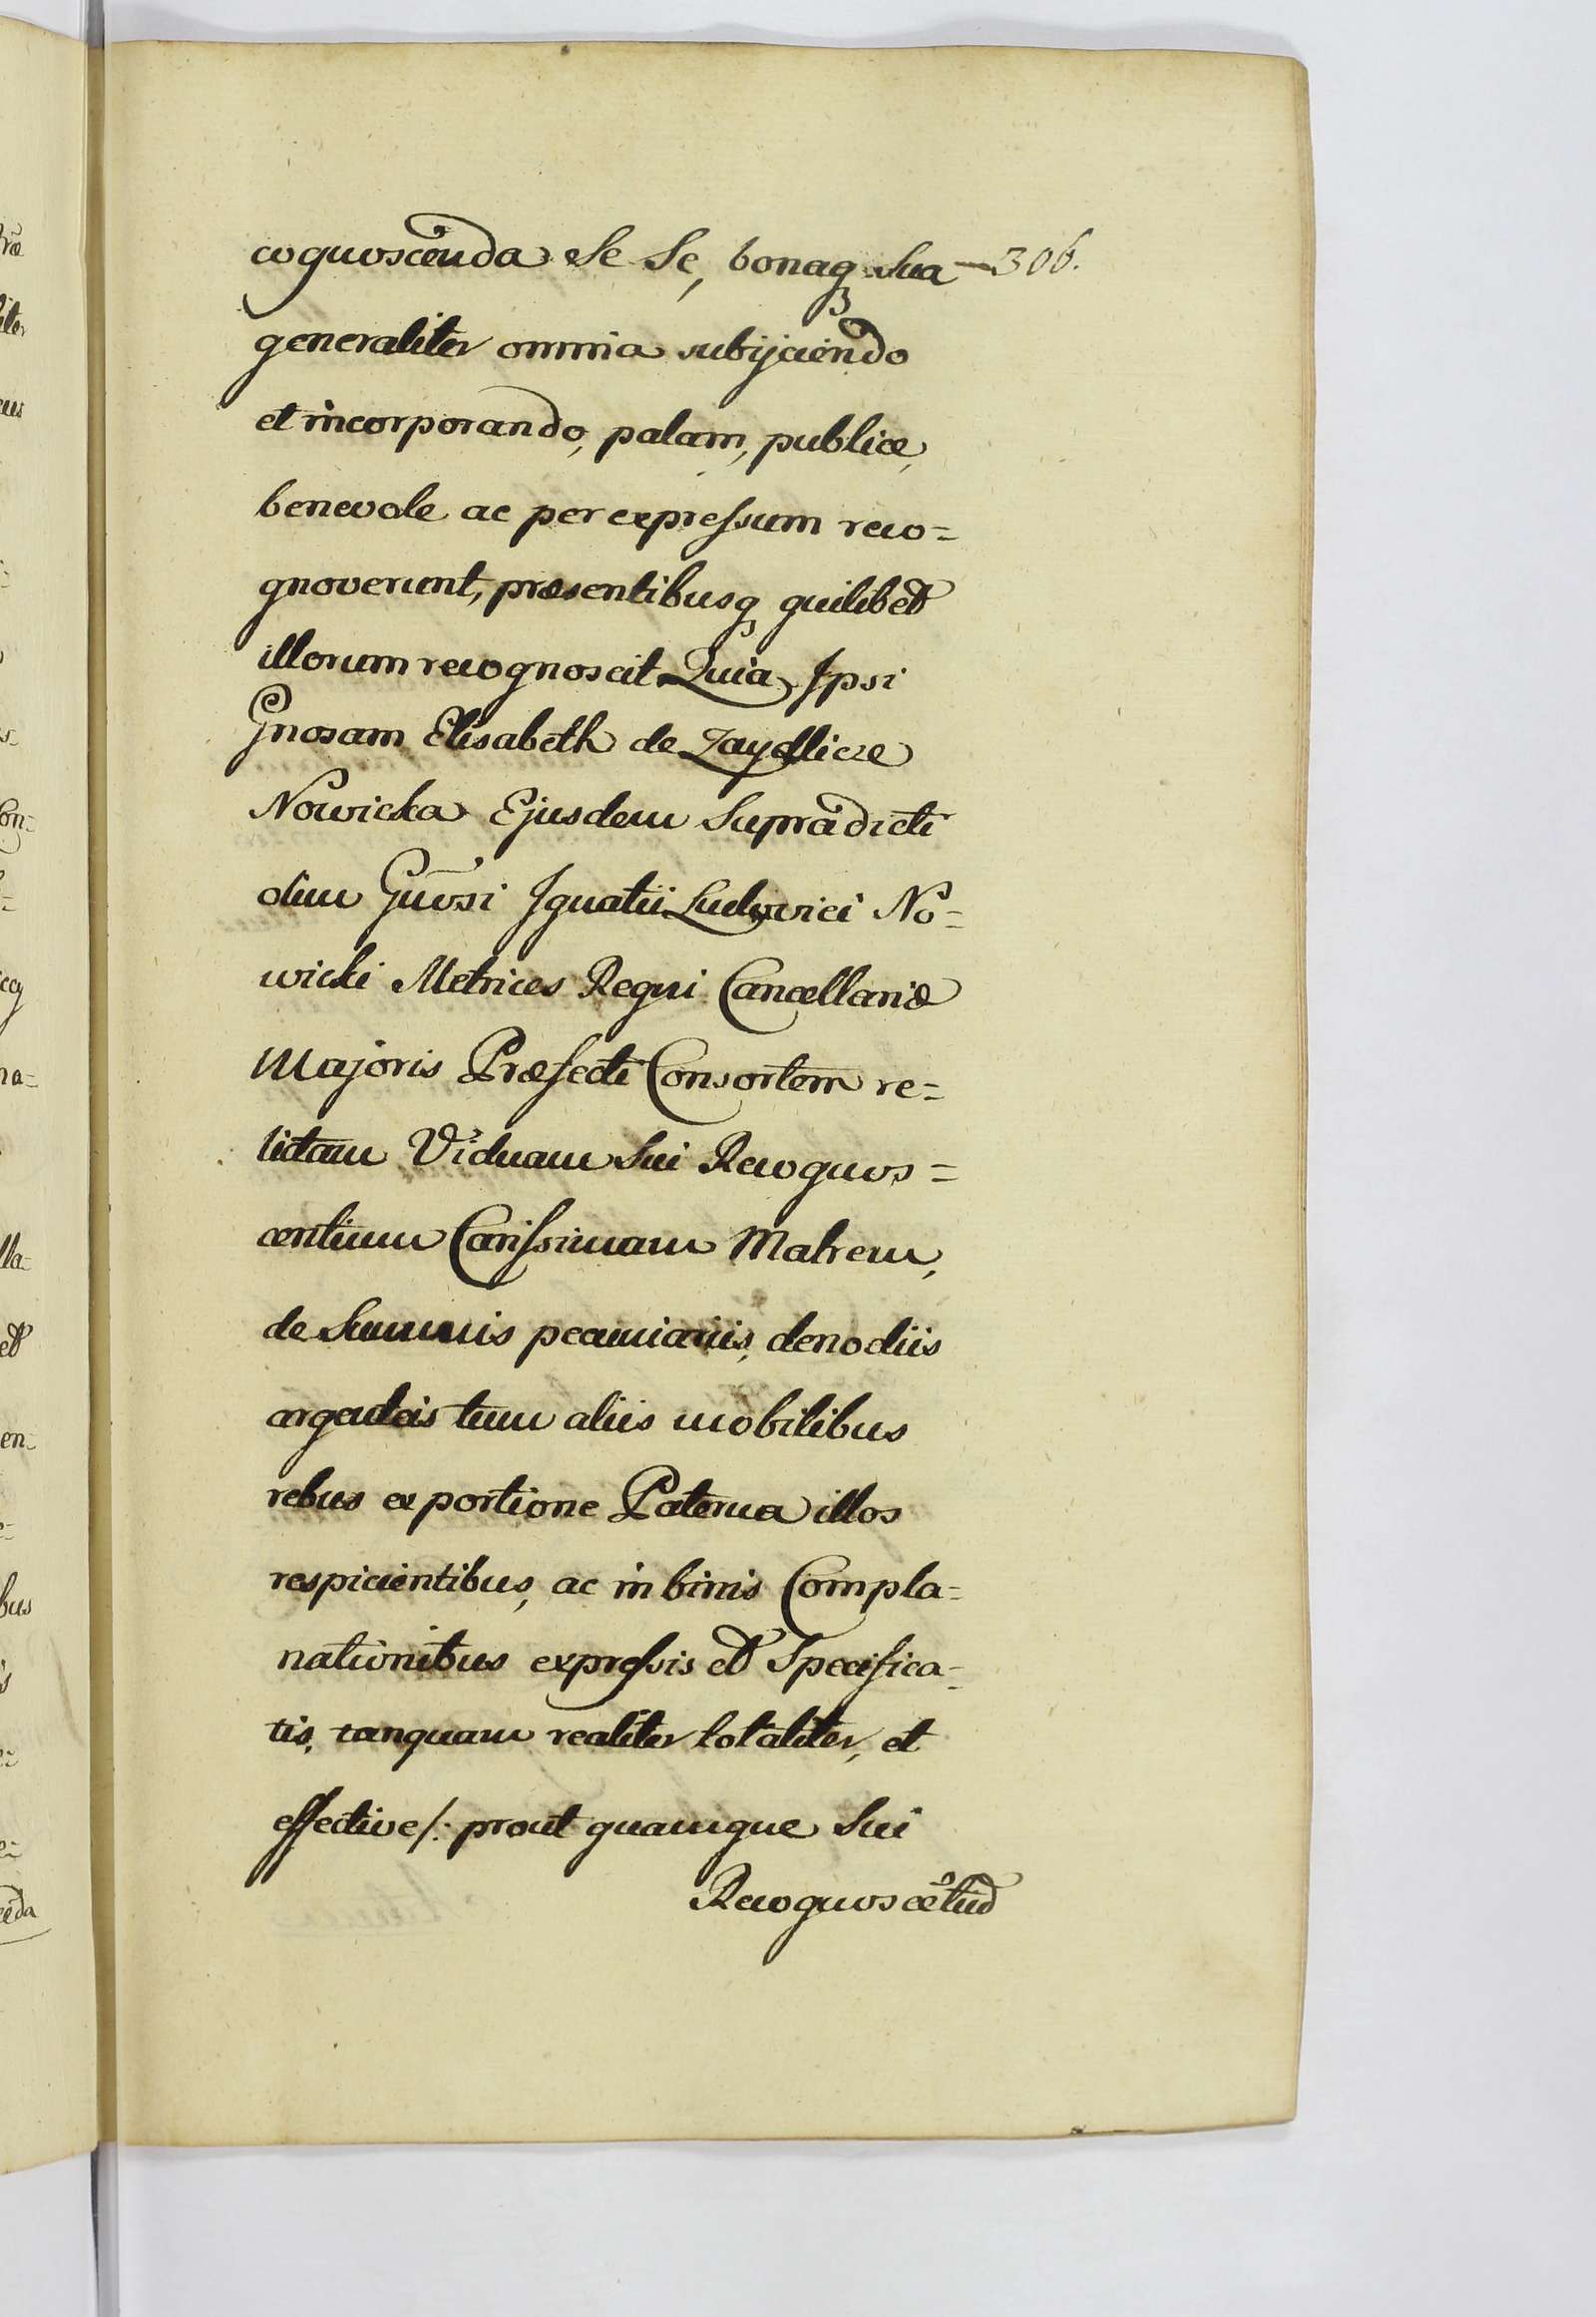 cognoscenda Se Se, bonaq Sua 306.
generaliter omnia subijciendo
et incorporando, palam, publice,
benevole ac per expressum reco=
gnoverunt, præsentibusq quilibet
illorum recognoscit Quia Ipsi
Gnosam Elisabeth de Zaydlicze
Nowicka Ejusdem Supradicti
olim Gnosi Ignatii Ludovici No=
wicki Metrices Regni Cancellariæ
Majoris Præfecti Consortem re=
lictam Viduam Sui Recognos=
centium Carissimam Matrem,
de Summis pecuniariis, denodiis
argenteis tum aliis mobilibus
rebus ex portione Paterna illos
respicientibus, ac in binis Compla=
nationibus expressis et Specifica=
tis, tanquam realiter totaliter, et
effective /: prout quamque Sui
Recognoscētiū